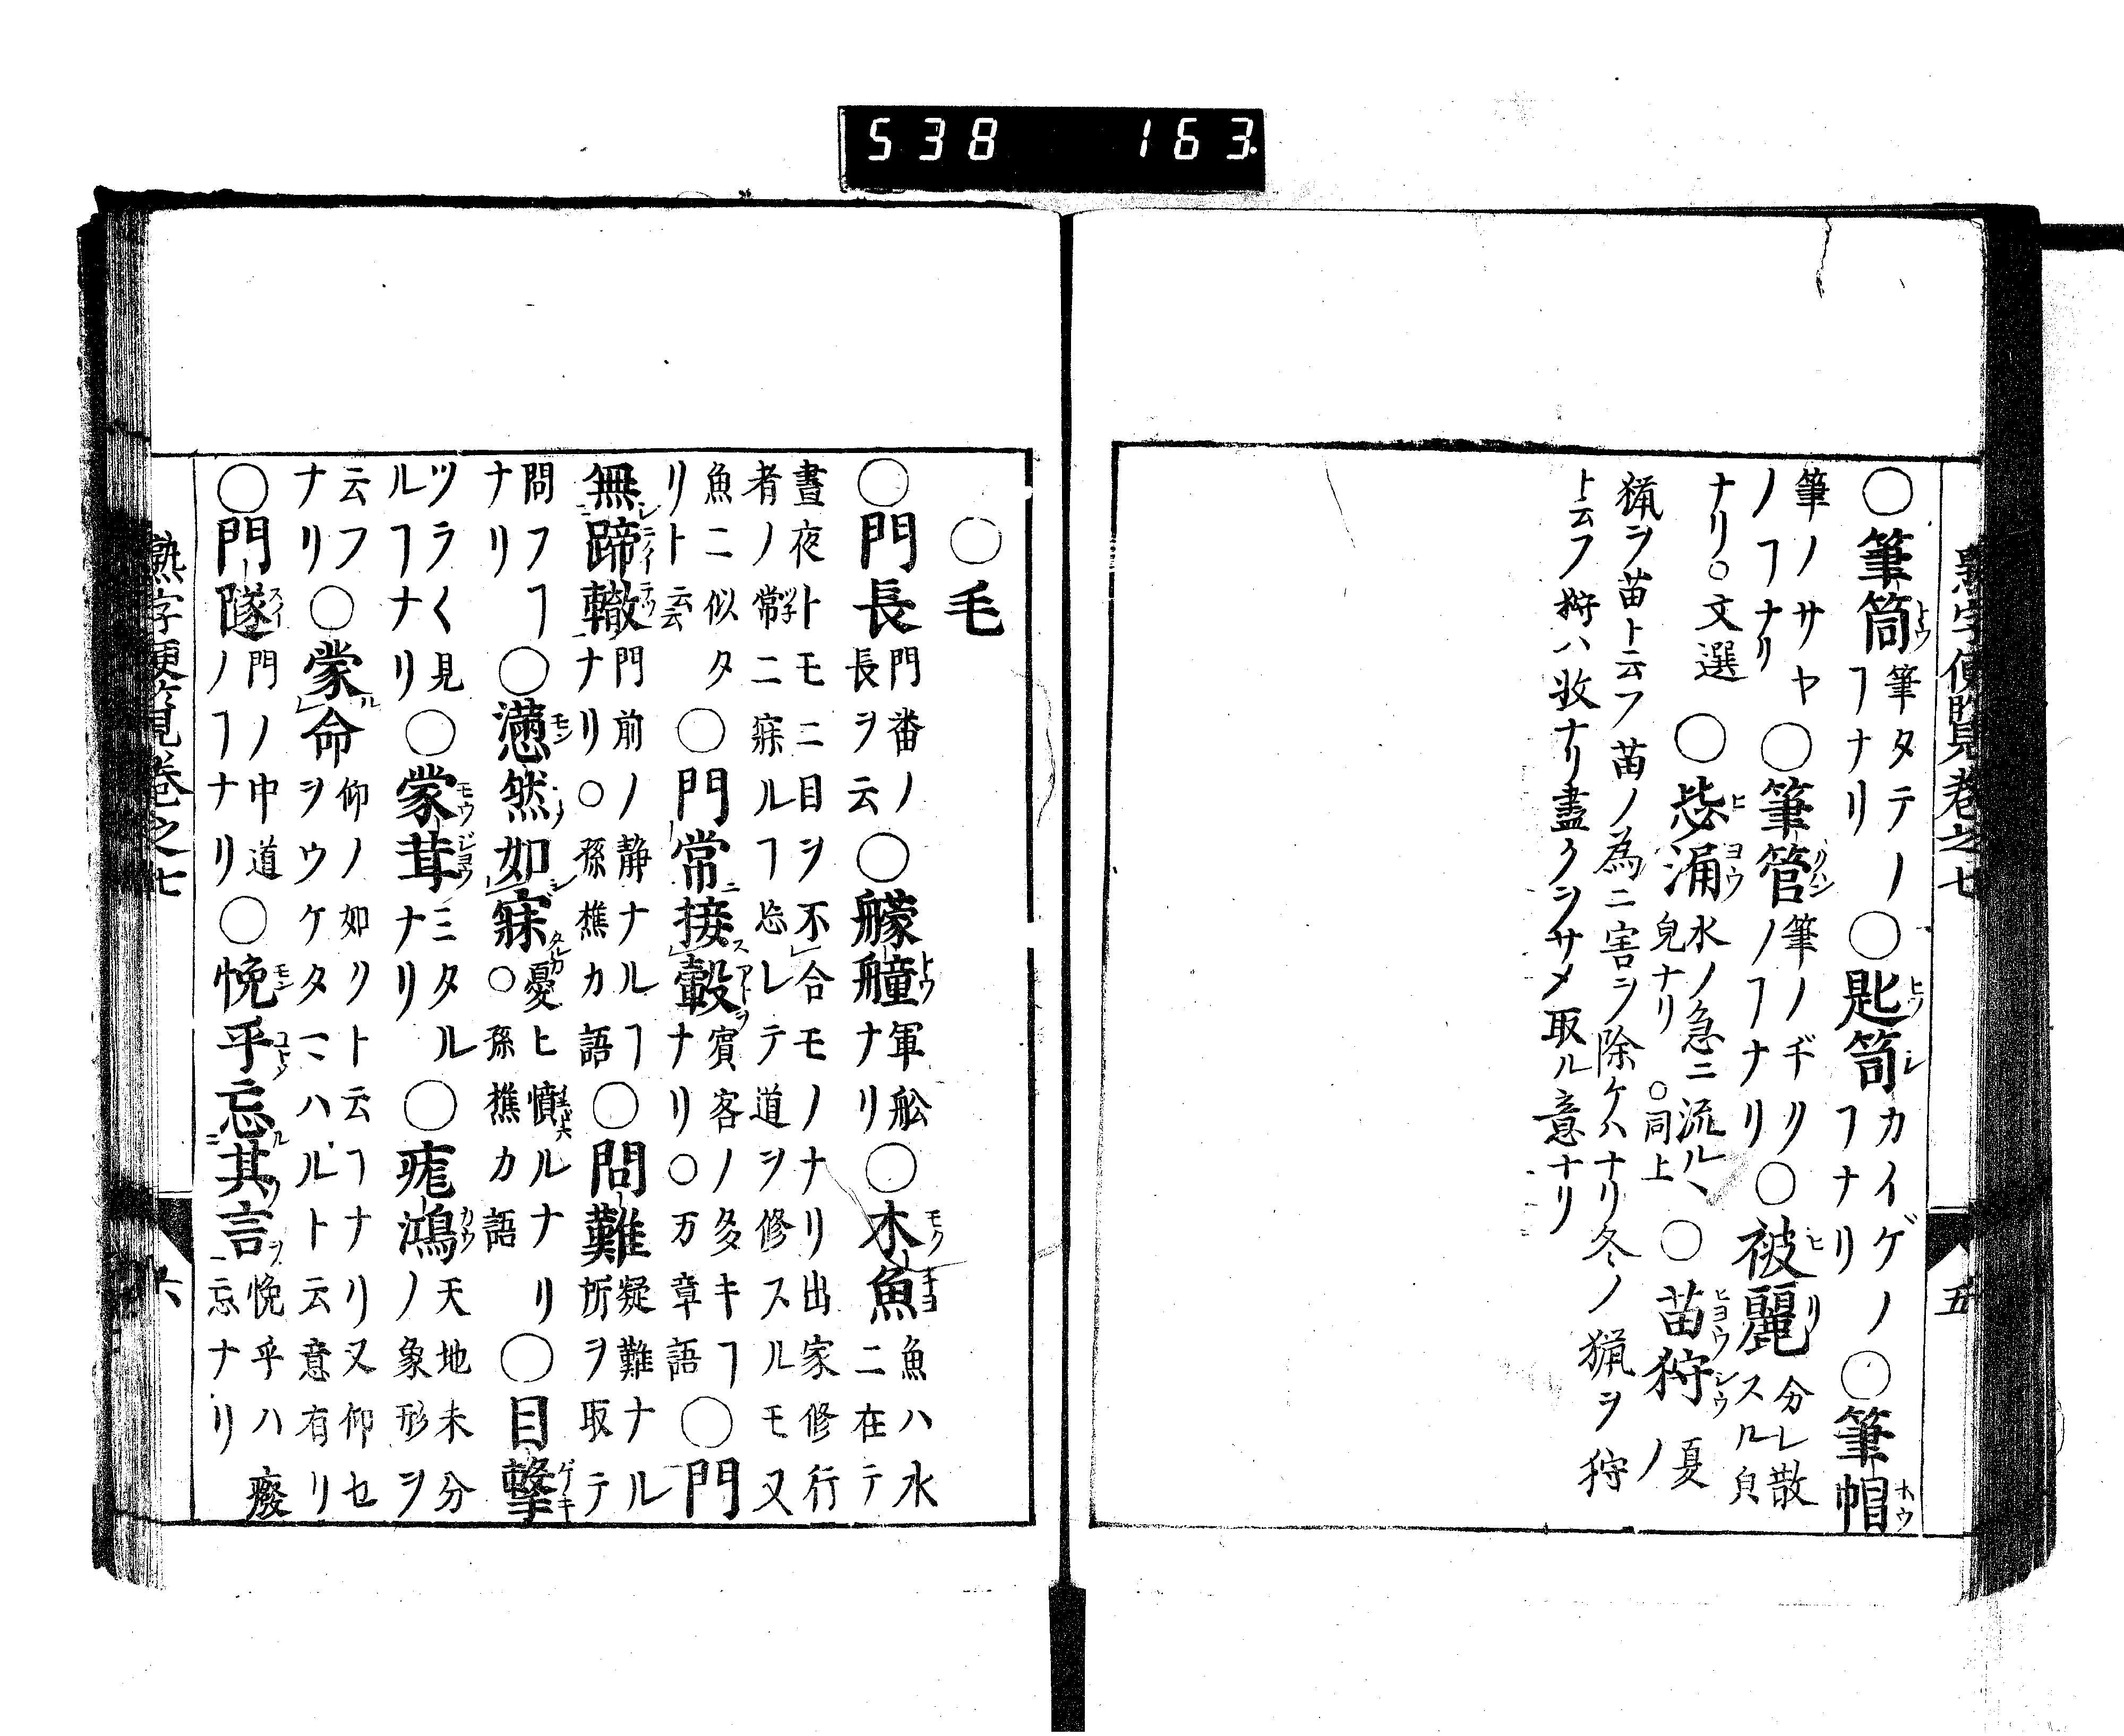 538 163.
熟字便覧巻之七 五
○筆筒トウ 筆タテノ
ヿナリ ○匙笥ヒツシ カイゲノ
ヿナリ ○筆帽ホウ
筆ノサヤ
ノヿナリ ○筆管クハン 筆ノヂリ
ノヿナリ ○被麗ヒリ 分レ散
スル皃
ナリ○文選 ○毖涌ヒヨウ 水ノ急ニ流ルヽ
皃ナリ ○同上 ○苗狩ヒヨウシウ 夏ノ
猟ヲ苗ト云フ苗ノ為ニ害ヲ除ケハナリ冬ノ猟ヲ狩
ト云フ狩ハ收ナリ盡クヲサメ取ル意ナリ
○毛
○門長 門番ノ
長ヲ云 ○艨艟トウ 軍舩
ナリ ○木魚モクギヨ 魚ハ水
ニ在テ
晝夜トモニ目ヲ不合モノナリ出家修行
者ノ常ニ寐ルヿ忘レテ道ヲ修スルモ又
魚ニ似タ
リト云云 ○門常ニ接轂 賓客ノ多キヿ
ナリ○万章語 ○門
無蹄轍テイテツ 門前ノ静ナルヿ
ナリ○孫樵カ語 ○問難 疑難ナル
所ヲ取テ
問フヿ
ナリ ○懣然モン如寐 憂ヒ憤ルナリ
○孫樵カ語 ○目撃ゲキ
ツラ〱見
ルヿナリ ○蒙茸モウジヨウ ミタル
ナリ ○痝鴻カウ 天地未分
ノ象形ヲ
云フ
ナリ ○蒙ル命 仰ノ如クト云ヿナリ又仰セ
ヲウケタマハルト云意有リ
○門隧スイ 門ノ中道
ノヿナリ ○悗乎モンコトシテ忘ル其言ヲ 悗乎ハ廢
忘ナリ
熟字便覧巻之七 六